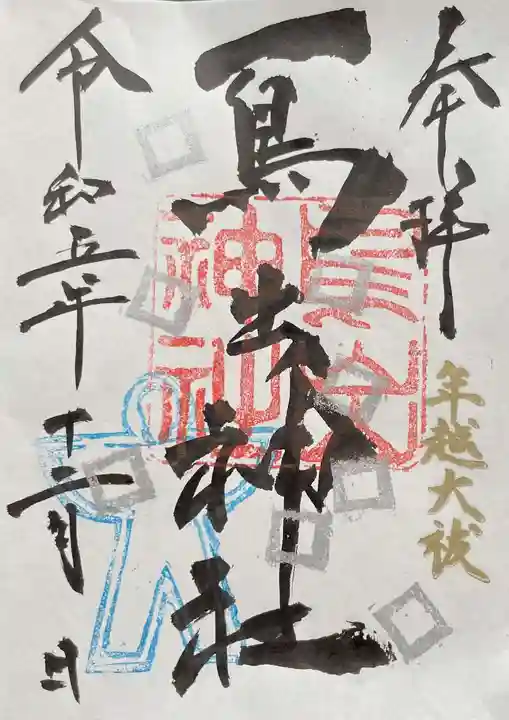 奉拝
年越大祓
神社
令和五年十二月 日